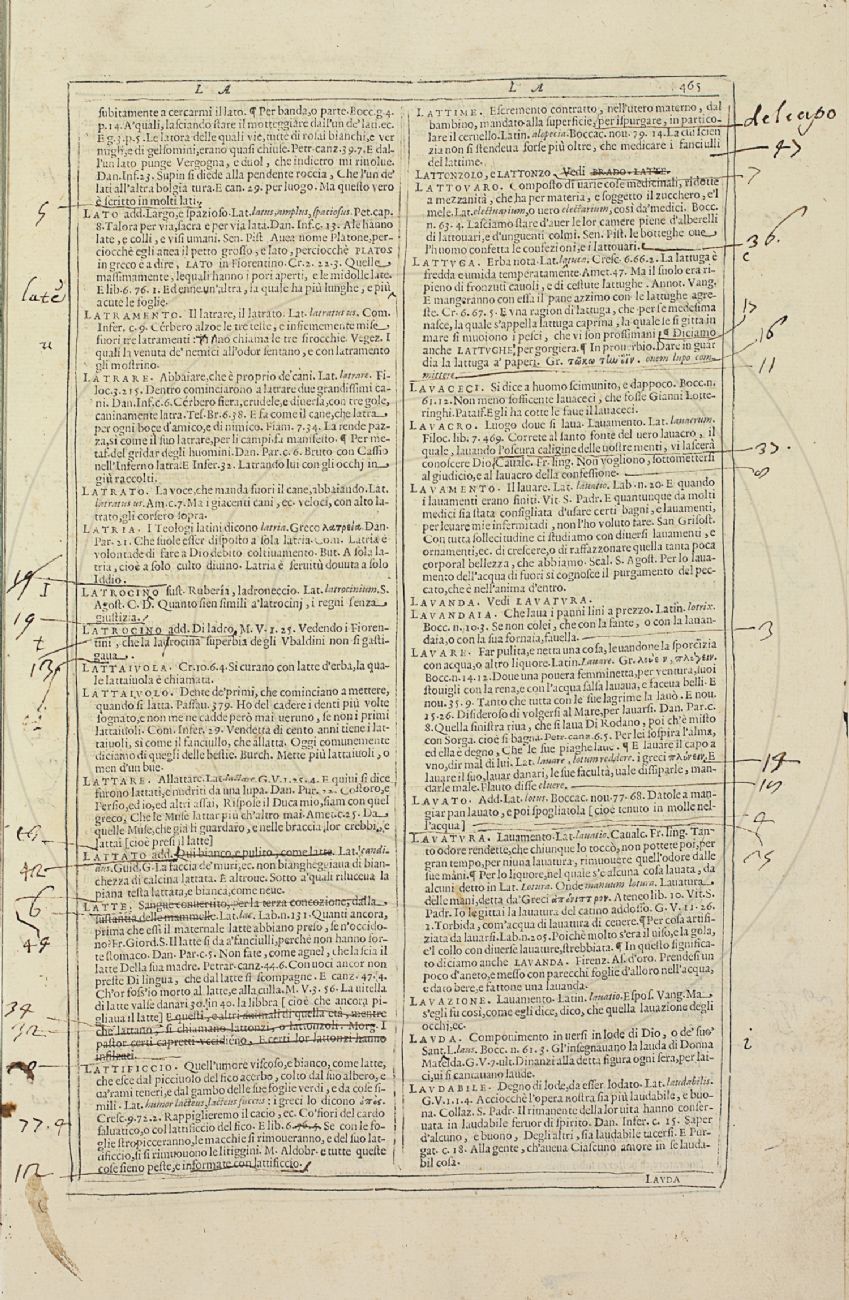 L A
L A 465
subitamente a cercarmi il lato. ¶ Per banda, o parte. Bocc. g. 4.
p. 14. A'quali, lasciando stare il motteggiare dall'un de' lati. ec.
E g. 3. p. 5. Le latora delle quali vie, tutte di rosai bianchi, e ver
migli, e di gelsomini, erano quasi chiuse. Petr. canz. 39. 7. E dal-
l'un lato punge Vergogna, e duol, che indietro mi rivolue.
Dan. Inf. 23. Supin si diede alla pendente roccia, Che l'un de'
lati all'altra bolgia tura. E can. 29. per luogo. Ma questo vero
è scritto in molti lati.
5
LATO add. Largo, e spazioso. Lat. latus, amplus, spatiosus. Pet. cap.
8. Talora per via, sacra e per via lata. Dan. Inf. c. 13. Ale hanno
late, e colli, e visi umani. Sen. Pist Auea nome Platone, per-
ciocchè egli auea il petto grosso, e lato, perciocchè PLATOS
in greco è a dire, LATO in Fiorentino. Cr. 2. 22. 3. Quelle
massimamente, lequali hanno i pori aperti, e le midolle late.
E lib. 6. 76. 1. Ed enne un'altra, la quale ha più lunghe, e più
acute le foglie.
LATRAMENTO. Il latrare, il latrato. Lat. latratus. Com.
Infer. c. 9. Cerbero alzoe le tre teste, e insiememente mise
fuori tre latramenti: no chiama le tre sirocchie. Vegez. I
quali la venuta de' nemici all'odor sentano, e con latramento
gli mostrino.
LATRARE. Abbaiare, che è proprio de'cani. Lat. latrare. Fi-
loc. 3. 215. Dentro cominciarono a latrare due grandissimi ca-
ni. Dan. Inf. c. 6. Cerbero fiera, crudele, e diuersa, con tre gole,
caninamente latra. Tes. Br. 6. 38. E fa come il cane, che latra
per ogni boce d'amico, e di nimico. Fiam. 7. 34. La rende paz-
za, sì come il suo latrare, per li campi, fa manifesto. ¶ Per me-
taf. del gridar degli huomini. Dan. Par. c. 6. Bruto con Cassio
nell'Inferno latra. E Infer. 32. Latrando lui con gli occhi in
giù raccolti.
LATRATO. La voce, che manda fuori il cane, abbaiando. Lat.
latratus us. Am. c. 7. Ma i giacenti cani, ec. veloci, con alto la-
trato, gli corsero sopra.
LATRIA. I Teologi latini dicono latria. Greco λατρεία. Dan.
Par. 21. Che suole esser disposto a sola latria. Com. Latria è
volontade di fare a Dio debito coltiuamento. But. A sola la-
tria, cioè a solo culto diuino. Latria è seruitù douuta a solo
Iddio.
LATROCINO sust. Ruberia, ladroneccio. Lat. latrocinium. S.
Agost. C. D. Quanto sien simili a'latrocinj, i regni senza
giustizia.
19
LATROCINO add. Di ladro, M. V. 1. 25. Vedendo i Fioren-
tini, che la ladrocina superbia degli Vbaldini non si gasti-
gaua.
LATTAIVOLA. Cr. 10. 6. 4. Si curano con latte d'erba, la qua-
le lattaiuola è chiamata.
LATTAIVOLO. Dente de'primi, che cominciano a mettere,
quando si latta. Passau. 379. Ho del cadere i denti più volte
sognato, e non me ne cadde però mai ueruno, se non i primi
lattaiuoli. Com. Infer. 29. Vendetta di cento anni tiene i lat-
taiuoli, sì come il fanciullo, che allatta. Oggi comunemente
diciamo di quegli delle bestie. Burch. Mette più lattaiuoli, o
men d'un bue.
LATTARE. Allattare. Lat. lactare. G. V. 1. 25. 4. E quini si dice
furono lattati, e nudriti da una lupa. Dan. Pur. 22. Costoro, e
Persio, ed io, ed altri assai, Rispose il Duca mio, siam con quel
greco, Che le Muse lattar più ch'altro mai. Amet. c. 25. Da
quelle Muse, che già li guardaro, e nelle braccia, lor crebbi, e
lattai [cioè presi il latte]
LATTATO add. Qui bianco, e pulito, come latte. Lat. candi-
dus. Guid. G. La faccia de' muri, ec. non biangheggiaua di bian-
chezza di calcina lattata. E altroue. Sotto a quali riluceua la
piana testa lattata, e bianca, come neue.
LATTE. Sangue conuertito, per la terza concozione, dalla
sustantia delle mammelle. Lat. lac. Lab. n. 131. Quanti ancora,
prima che essi il maternale latte abbiano preso, se n'occido-
no? Fr. Giord. S. Il latte si dà a'fanciulli, perchè non hanno for-
te stomaco. Dan. Par. c. 5. Non fate, come agnel, che lascia il
latte Della sua madre. Petrar. canz. 44. 6. Con uoci ancor non
preste Di lingua, che dal latte si scompagne. E canz. 47. 4.
Ch'or foss'io morto al latte, e alla culla. M. V. 3. 56. La uitella
di latte valse danari 30. in 40. la libbra [cioè che ancora pi-
gliaua il latte] E quelli, o altri animali di quella età, mentre
che lattano, si chiamano lattonzi, o lattonzoli. Morg. I
pastor certi capretti vccidieno, E certi lor lattonzi hanno
infilzati.
LATTIFICCIO. Quell'umore viscoso, e bianco, come latte,
che esce dal picciuolo del fico acerbo, colto dal suo albero, e
da'rami teneri, e dal gambo delle sue foglie verdi, e da cose si-
mili. Lat. humor lacteus, lacteus succus: i greci lo dicono ὀπός.
Cresc. 9. 72. 2. Rappiglieremo il cacio, ec. Co'fiori del cardo
saluatico, o col lattificcio del fico. E lib. 6. Se con le fo-
glie stropicceranno, le macchie si rimoueranno, e del suo lat-
tificcio, si si rimuouono le litiggini. M. Aldobr. e tutte queste
cose sieno peste, e informate con lattificcio.
LATTIME. Escremento contratto, nell'utero materno, dal
bambino, mandato alla superficie, per ispurgare, in partico-
lare il ceruello. Latin. alopecia. Boccac. nou. 79. 14. La cui scien
zia non si stendeua forse più oltre, che medicare i fanciulli
del lattime.
del capo
LATTONZOLO, e LATTONZO. Vedi BRADO. LATTE.
LATTOVARO. Composto di uarie cose medicinali, ridotte
a mezzanità, che ha per materia, e soggetto il zucchero, e'l
mele. Lat. electuarium, o uero electarium, così da'medici. Bocc.
n. 63. 4. Lasciamo stare d'auer le lor camere piene d'alberelli
di lattouari, e d'unguenti colmi. Sen. Pist. le botteghe oue
l'huomo confetta le confezioni, e i lattouari.
36.
LATTVGA. Erba nota. Lat. lactuca. Cresc. 6. 66. 2. La lattuga è
fredda e umida temperatamente. Amet. 47. Ma il suolo era ri-
pieno di fronzuti cauoli, e di cestute lattughe. Annot. Vang.
E mangeranno con essa il pane azzimo con le lattughe agre-
ste. Cr. 6. 67. 5. E vna ragion di lattuga, che per se medesima
nasce, la quale s'appella lattuga caprina, la quale se si gitta in
mare si muoiono i pesci, che vi son prossimani. ¶ Diciamo
anche LATTVGHE, per gorgiera. ¶ In prouerbio. Dare in guar
dia la lattuga a' paperi. Gr. ouem lupo com-
mittere.
16
11
LAVACECI. Si dice a huomo scimunito, e dappoco. Bocc. n.
61. 12. Non meno sofficente lauaceci, che fosse Gianni Lotte-
ringhi. Pataff. Egli ha cotte le faue il lauaceci.
LAVACRO. Luogo doue si laua. Lauamento. Lat. lauacrum.
Filoc. lib. 7. 469. Correte al santo fonte del uero lauacro, il
quale, lauando l'oscura caligine delle nostre menti, vi lascerà
conoscere Dio. Caualc. Fr. ling. Non vogliono, sottomettersi
al giudicio, e al lauacro della confessione.
LAVAMENTO. Il lauare. Lat. lauatio. Lab. n. 20. E quando
i lauamenti erano finiti. Vit. S. Padr. E quantunque da molti
medici sia stata consigliata d'usare certi bagni, e lauamenti,
per leuare mie infermitadi, non l'ho voluto fare. San Grisost.
Con tutta sollecitudine ci studiamo con diuersi lauamenti, e
ornamenti, ec. di crescere, o di raffazzonare quella tanta poca
corporal bellezza, che abbiamo. Scal. S. Agost. Per lo laua-
mento dell'acqua di fuori si cognosce il purgamento del pec-
cato, che è nell'anima d'entro.
LAVANDA. Vedi LAVATVRA.
LAVANDAIA. Che laua i panni lini a prezzo. Latin. lotrix.
Bocc. n. 10. 3. Se non colei, che con la fante, o con la lauan-
daia, o con la sua fornaia, fauella.
3
LAVARE. Far pulita, e netta una cosa, leuandone la sporcizia
con acqua, o altro liquore. Latin. lauare. Gr. λούειν, πλύνειν.
Bocc. n. 14. 12. Doue una pouera femminetta, per ventura, suoi
stouigli con la rena, e con l'acqua salsa lauaua, e faceua belli. E
nou. 35. 9. Tanto che tutta con le sue lagrime la lauò. E nou.
15. 26. Disideroso di volgersi al Mare, per lauarsi. Dan. Par. c.
8. Quella sinistra riua, che si laua Di Rodano, poi ch'è misto
con Sorga. cioè si bagna. Petr. canz. 6. 5. Per lei sospira l'alma,
ed ella è degno, Che le sue piaghe laue. ¶ E lauare il capo a
vno, dir mal di lui. Lat. lauare, lotum reddere. i greci πλύνειν. E
lauare il suo, lauar danari, le sue facultà, uale dissiparle, man-
darle male. Plauto disse eluere.
LAVATO. Add. Lat. lotus. Boccac. nou. 77. 68. Datole a man-
giar pan lauato, e poi spogliatola [cioè tenuto in molle nel-
l'acqua]
LAVATVRA. Lauamento. Lat. lauatio. Caualc. Fr. ling. Tan-
to odore rendette, che chiunque lo toccò, non pottete poi, per
gran tempo, per niuna lauatura, rimuouere quell'odore dalle
sue mani. ¶ Per lo liquore, nel quale s'è alcuna cosa lauata, da
alcuni detto in Lat. Lotura. Onde manuum lotura. Lauatura
delle mani, detta da'Greci ἀπόνιπτρον. Ateneo lib. 10. Vit. S.
Padr. Io le gittai la lauatura del catino addosso. G. V. 11. 26.
1. Torbida, com'acqua di lauatura di cenere. ¶ Per cosa artifi-
ziata da lauarsi. Lab. n. 205. Poichè molto s'era il uiso, e la gola,
e'l collo con diuerse lauature, strebbiata. ¶ In questo significa-
to diciamo anche LAVANDA. Firenz. As. d'oro. Prendesi un
poco d'aneto, e messo con parecchi foglie d'alloro nell'acqua,
e dato bere, e fattone una lauanda.
LAVAZIONE. Lauamento. Latin. lauatio. Espos. Vang. Ma
s'egli fu così, come egli dice, dico, che quella lauazione degli
occhi, ec.
LAVDA. Componimento in uersi in lode di Dio, o de' suo'
Sant. Laus. Bocc. n. 61. 3. Gl'insegnauano la lauda di Donna
Matelda. G. V. 7. ult. Dinanzi alla detta figura ogni sera, per lai-
ci, ui si cantauano laude.
LAVDABILE. Degno di lode, da esser lodato. Lat. laudabilis.
G. V. 1. 1. 4. Acciocchè l'opera nostra sia più laudabile, e buo-
na. Collaz. S. Padr. Il rimanente della lor uita hanno conser-
uata in laudabile feruor di spirito. Dan. Infer. c. 15. Saper
d'alcuno, e buono, Degli altri, sia laudabile tacersi. E Pur-
gat. c. 18. Alla gente, ch'auera Ciascuno amore in se lauda-
bil cosa.
LAVDA